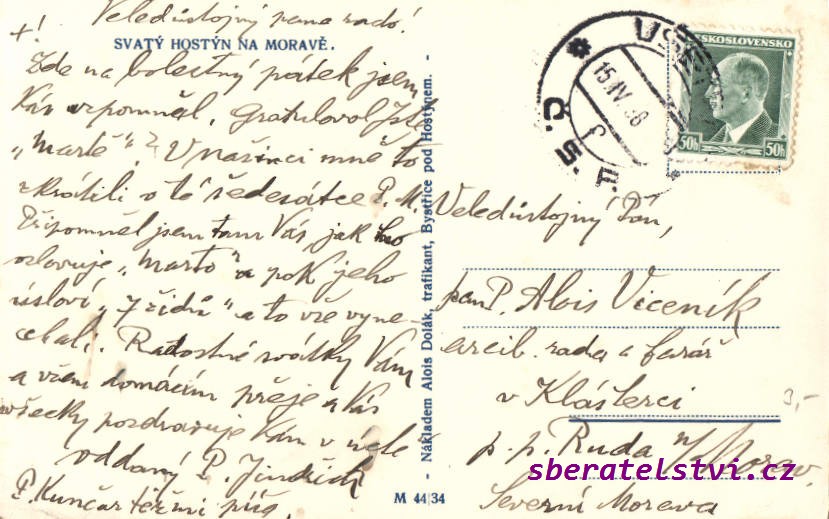 +!
Veledůstojný pane rado!
SVATÝ HOSTÝN NA MORAVĚ.
Zde na bolestný pátek jsem
Vás vzpomněl. Gratuloval jste
„Martě“? V Našinci mně to
zkrátili o té šedesátce P. M.
Připomněl jsem tam Vás jak ho
oslovuje „Marto“ a pak jeho
úsloví „
“ a to vše vyne-
chali. Radostné svátky Vám
a všem domácím přeje a Vás
všecky pozdravuje Vám v úctě
oddaný P. Jindřich
P. Kunčar též mi píše.
- Nákladem Alois Dolák, trafikant, Bystřice pod Hostýnem. -
M 44 34
Č. S. P.
15.IV.38
ČESKOSLOVENSKO
50h 50h
Veledůstojný Pán,
pan P. Alois Viceník
arcib. rada a farář
v Klášterci
p. p. Ruda n/Morav.
Severní Morava
3,-
sberatelstvi.cz